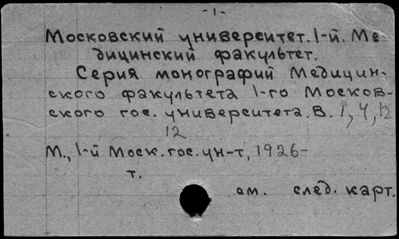 -1-
Московский университет. 1-й. Ме-
дицинский факультет.
Серия монографий Медицин-
ского факультета 1-го Москов-
ского гос. университета. В. 1, 4, 12
12
М., 1-й Моск. гос. ун-т, 1926-
т.
см. след. карт.